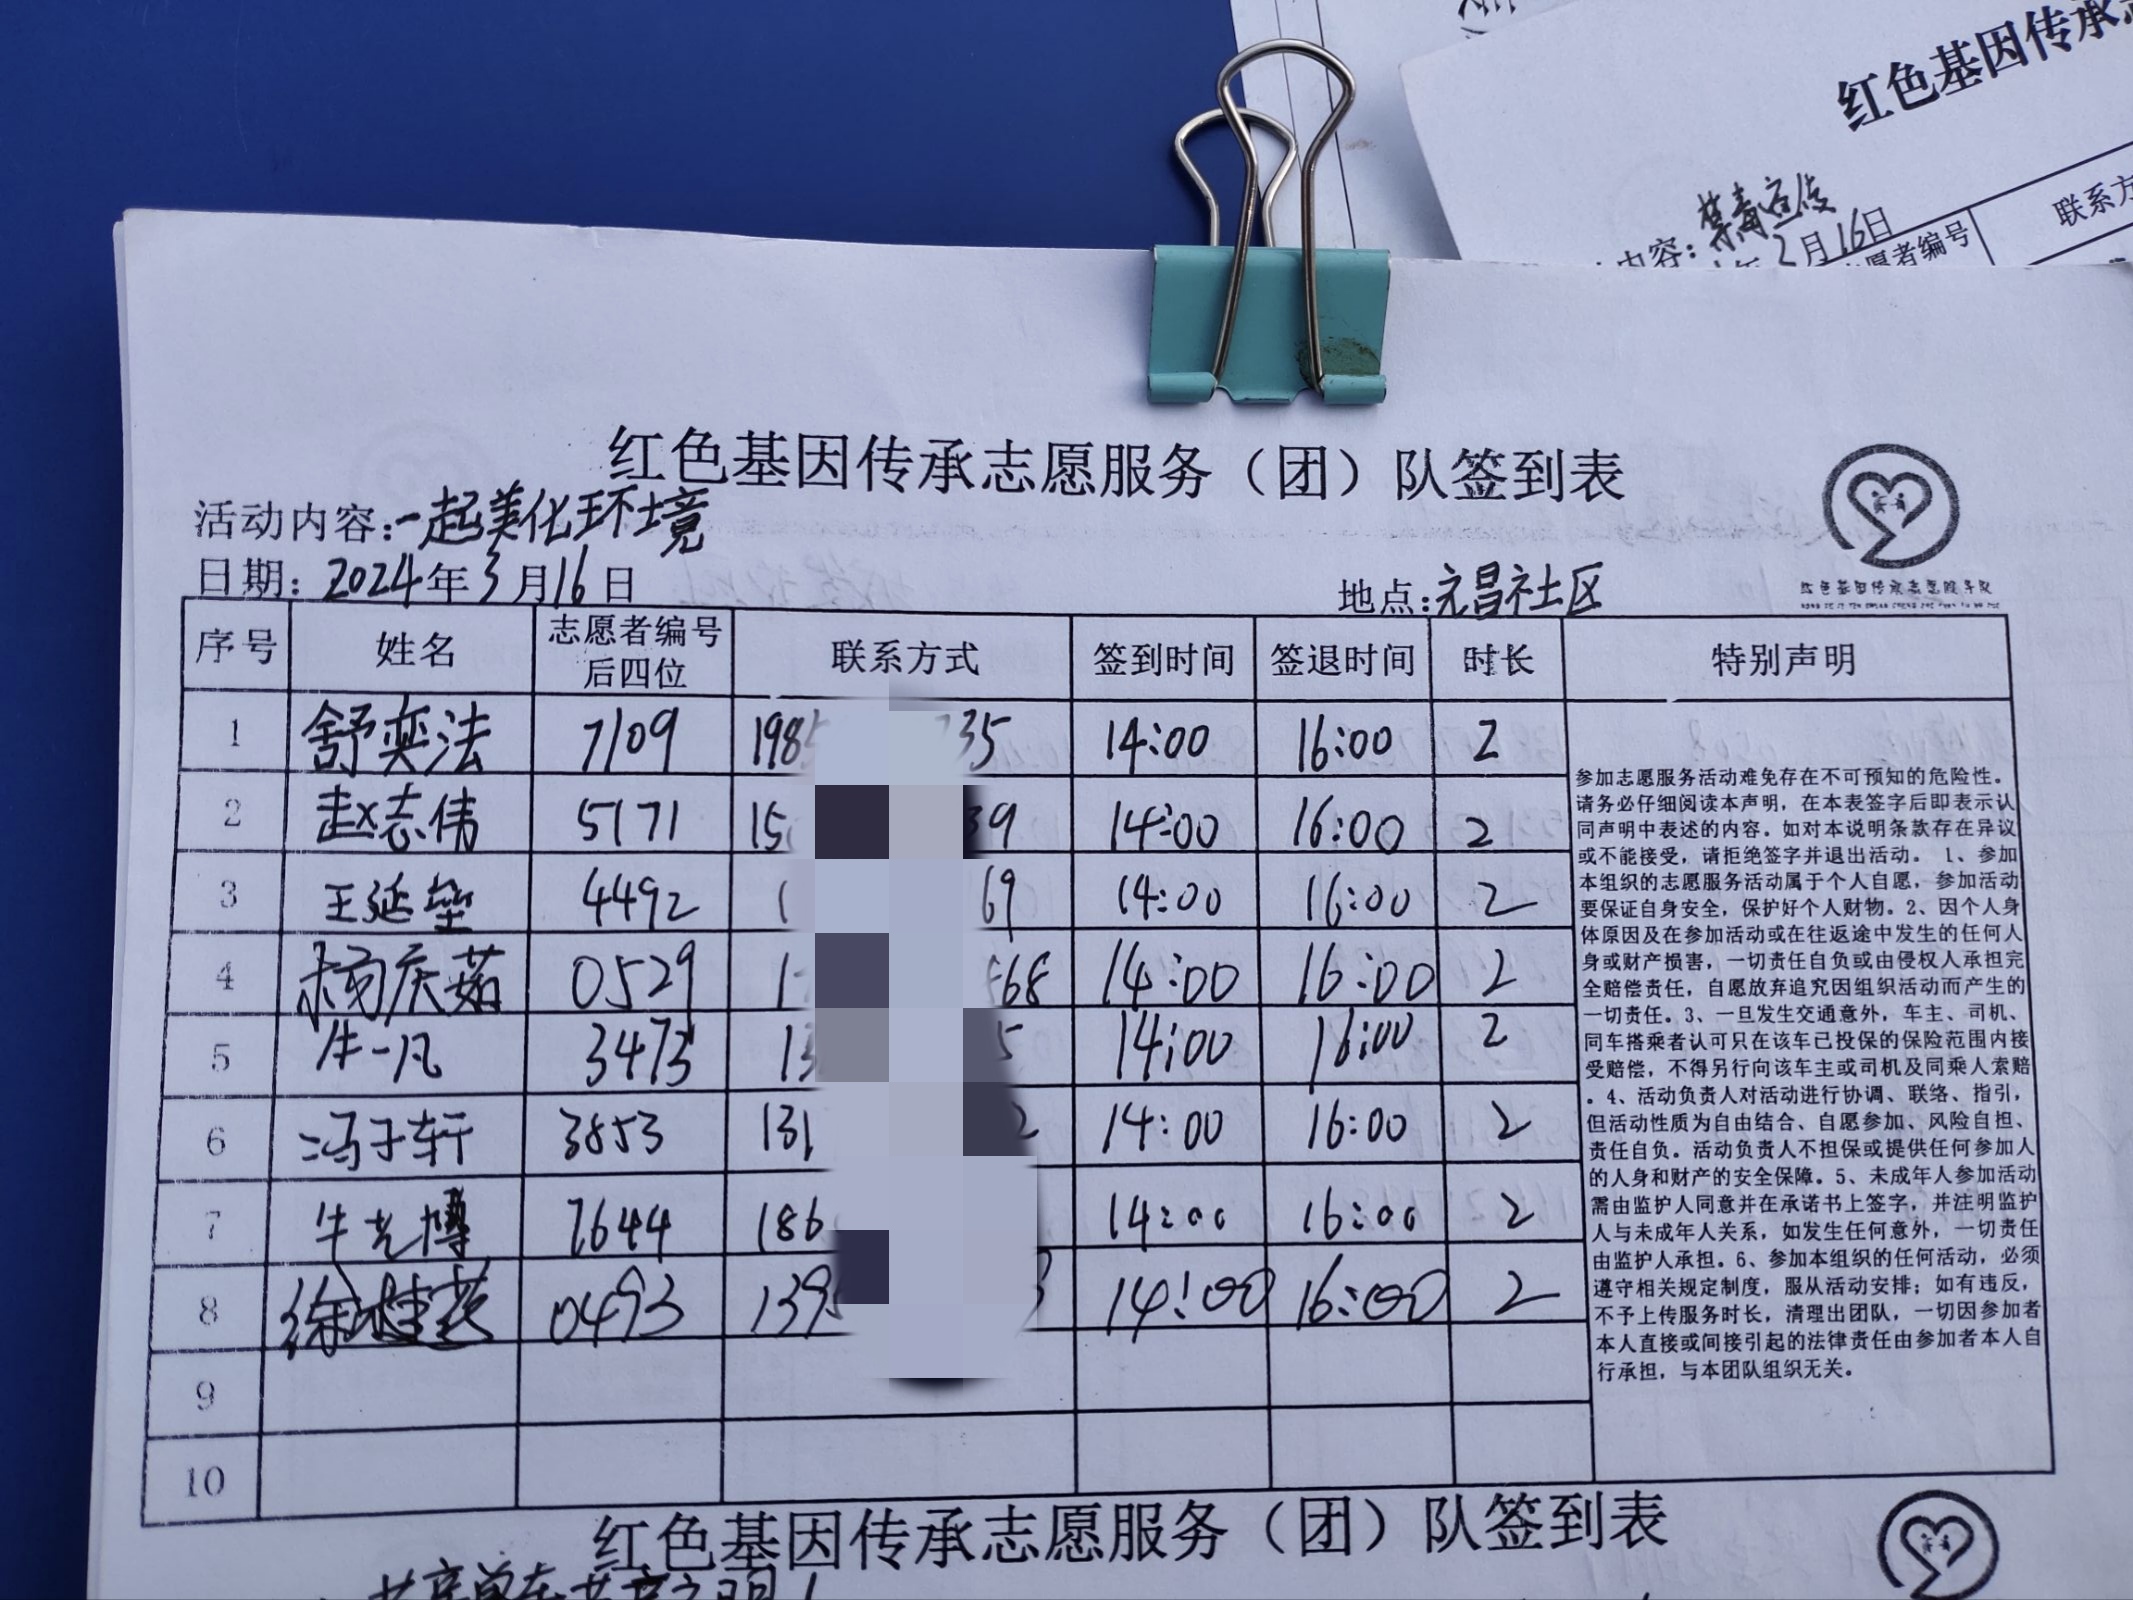 红色基因传承
禁毒宣传
内容：
年2月16日
愿者编号
联系方
红色基因传承志愿服务（团）队签到表
活动内容：一起美化环境
日期：2024年3月16日 地点：元昌社区
红色基因传承志愿服务队
序号 姓名 志愿者编号后四位 联系方式 签到时间 签退时间 时长 特别声明
1 舒奕法 7109 1985 735 14:00 16:00 2
2 赵志伟 5171 15 39 14:00 16:00 2
3 王延垒 4492 1 69 14:00 16:00 2
4 杨庆茹 0529 1 568 14:00 16:00 2
5 牛一凡 3473 13 5 14:00 16:00 2
6 冯子轩 3853 131 2 14:00 16:00 2
7 牛艺博 7644 186 14:00 16:00 2
8 徐 0493 139 3 14:00 16:00 2
9
10
参加志愿服务活动难免存在不可预知的危险性。
请务必仔细阅读本声明，在本表签字后即表示认
同声明中表述的内容。如对本说明条款存在异议
或不能接受，请拒绝签字并退出活动。 1、参加
本组织的志愿服务活动属于个人自愿，参加活动
要保证自身安全，保护好个人财物。2、因个人身
体原因及在参加活动或在往返途中发生的任何人
身或财产损害，一切责任自负或由侵权人承担完
全赔偿责任，自愿放弃追究因组织活动而产生的
一切责任。3、一旦发生交通意外，车主、司机、
同车搭乘者认可只在该车已投保的保险范围内接
受赔偿，不得另行向该车主或司机及同乘人索赔
。4、活动负责人对活动进行协调、联络、指引，
但活动性质为自由结合、自愿参加、风险自担、
责任自负。活动负责人不担保或提供任何参加人
的人身和财产的安全保障。5、未成年人参加活动
需由监护人同意并在承诺书上签字，并注明监护
人与未成年人关系，如发生任何意外，一切责任
由监护人承担。6、参加本组织的任何活动，必须
遵守相关规定制度，服从活动安排；如有违反，
不予上传服务时长，清理出团队，一切因参加者
本人直接或间接引起的法律责任由参加者本人自
行承担，与本团队组织无关。
红色基因传承志愿服务（团）队签到表